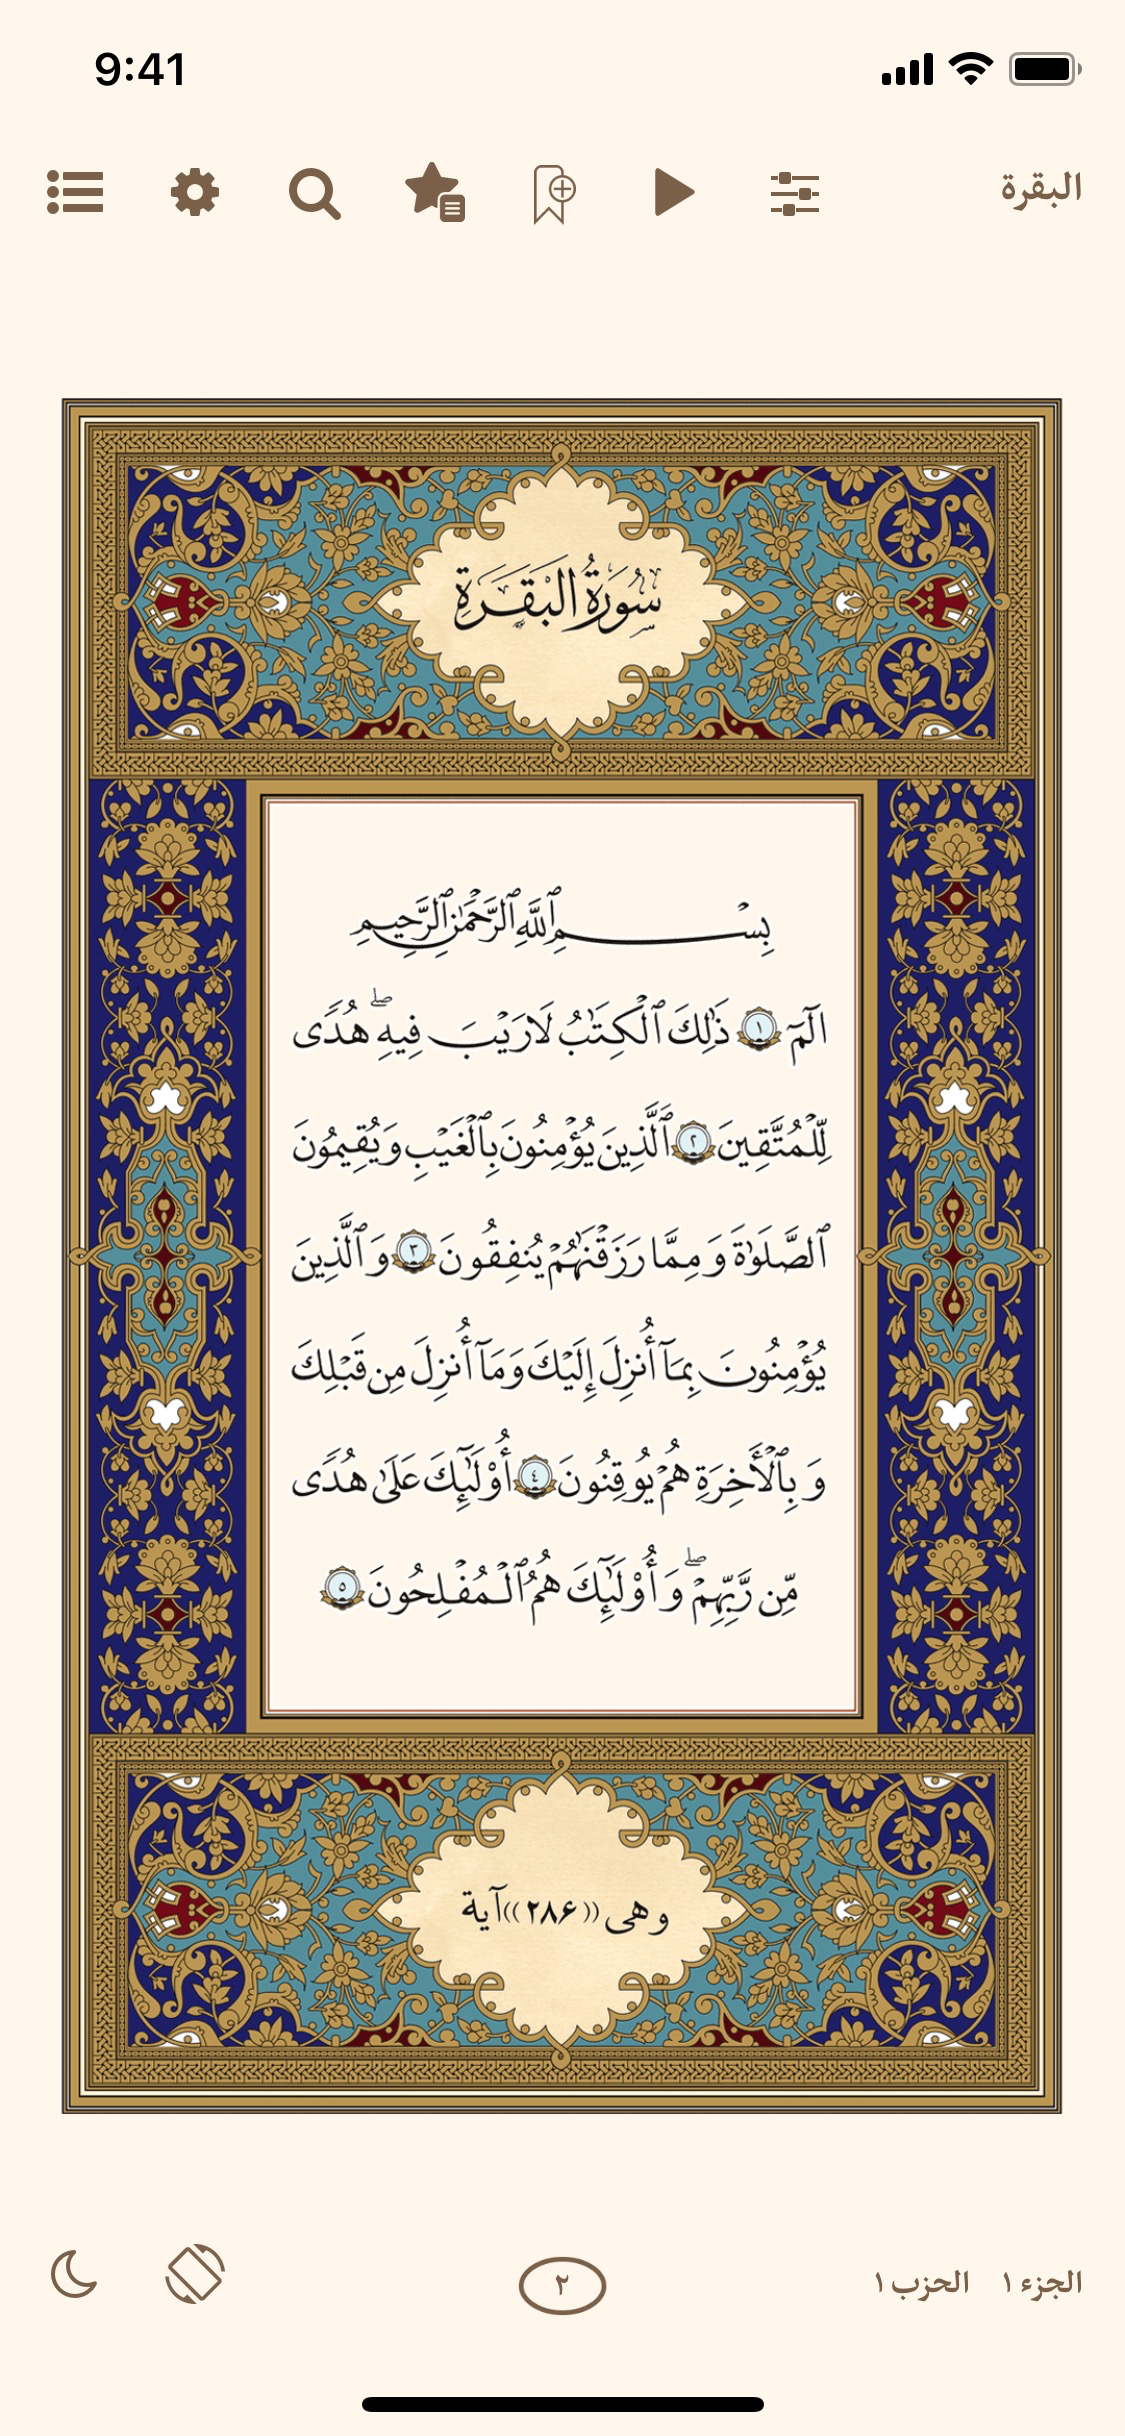 9:41
البقرة
سُورَةُ البَقَرَةِ
بِسْمِ ٱللَّهِ ٱلرَّحْمَٰنِ ٱلرَّحِيمِ
الٓمٓ ١ ذَٰلِكَ ٱلْكِتَٰبُ لَا رَيْبَ فِيهِ ۖ هُدًى
لِّلْمُتَّقِينَ ٢ ٱلَّذِينَ يُؤْمِنُونَ بِٱلْغَيْبِ وَيُقِيمُونَ
ٱلصَّلَوٰةَ وَمِمَّا رَزَقْنَٰهُمْ يُنفِقُونَ ٣ وَٱلَّذِينَ
يُؤْمِنُونَ بِمَآ أُنزِلَ إِلَيْكَ وَمَآ أُنزِلَ مِن قَبْلِكَ
وَبِٱلْأَخِرَةِ هُمْ يُوقِنُونَ ٤ أُوْلَٰٓئِكَ عَلَىٰ هُدًى
مِّن رَّبِّهِمْ ۖ وَأُوْلَٰٓئِكَ هُمُ ٱلْمُفْلِحُونَ ٥
وهى ((٢٨۶)) آية
الجزء ١ الحزب ١
٢